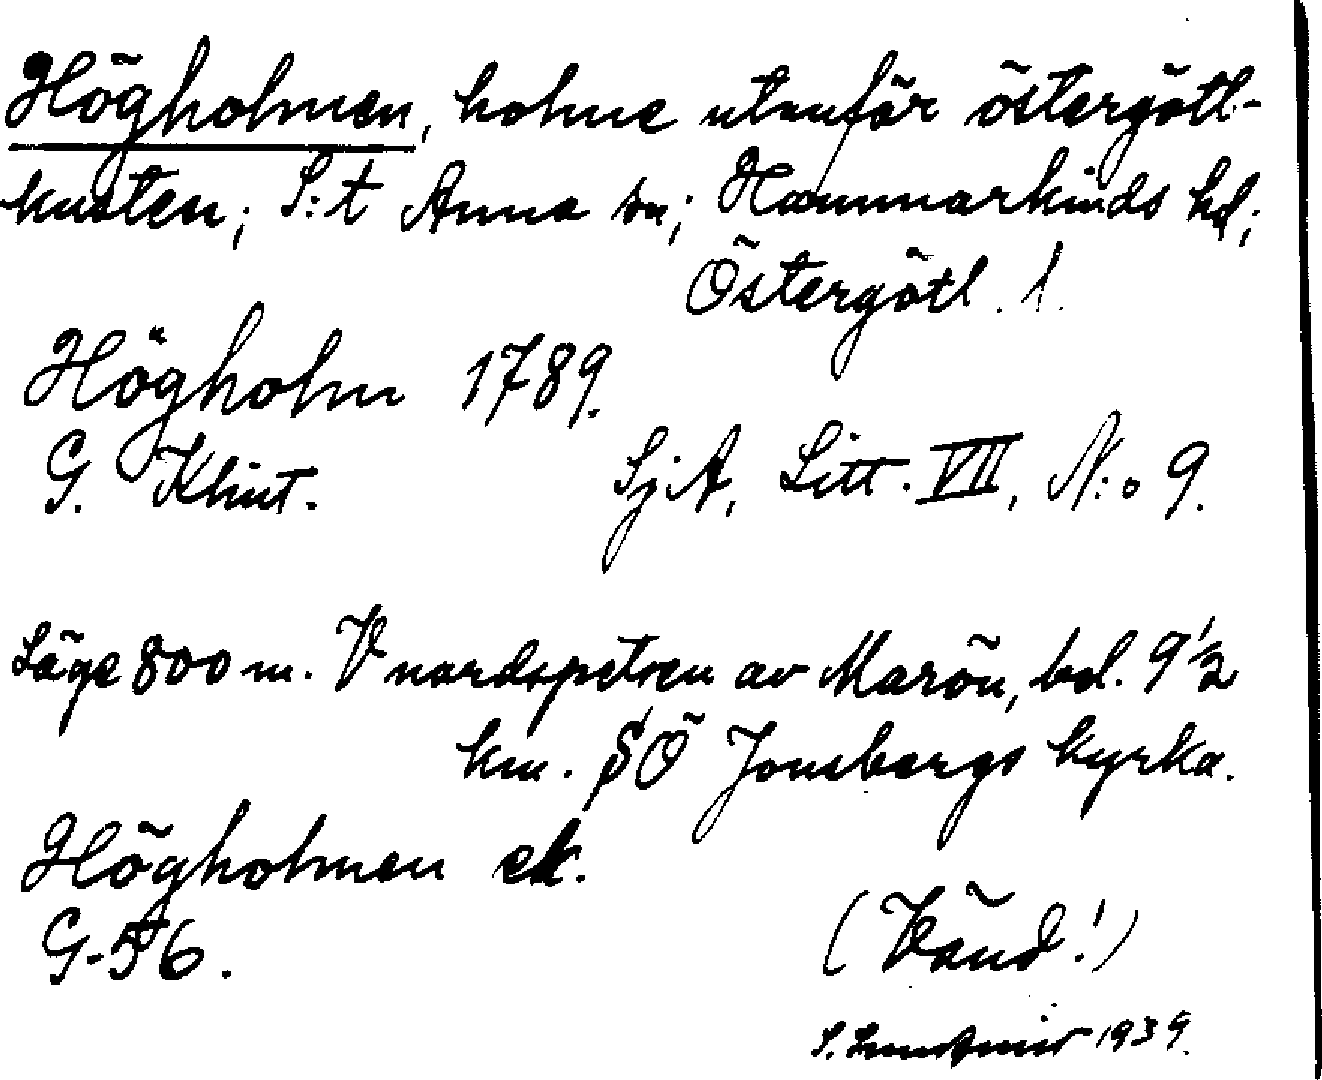 Högholmen, holme utanför östergötl-
kusten; S:t Anna sn; Hammarkinds hd;
Östergötl. l.
Högholm 1789.
G. Klint. SjA, Litt. VII, N:o 9.
Läge 800 m. V nordspetsen av Marön, bel. 9 1/2
km. SÖ Jonsbergs kyrka.
Högholmen ek.
G-56.
(Vänd!)
S. 1939.